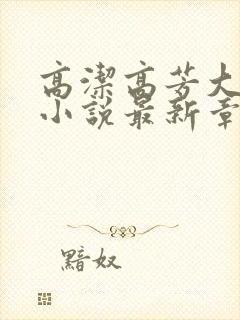 高潔高芳大
小說最新章
黯奴